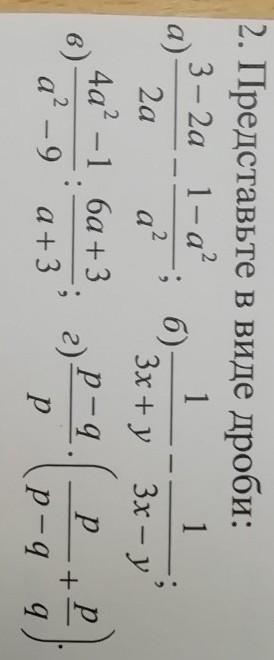 2. Представьте в виде дроби:
а) (3 − 2a)/(2a) − (1 − a²)/(a²); б) 1/(3x + y) − 1/(3x − y);
в) (4a² − 1)/(a² − 9) : (6a + 3)/(a + 3); г) (p − q)/p · (p/(p − q) + p/q).